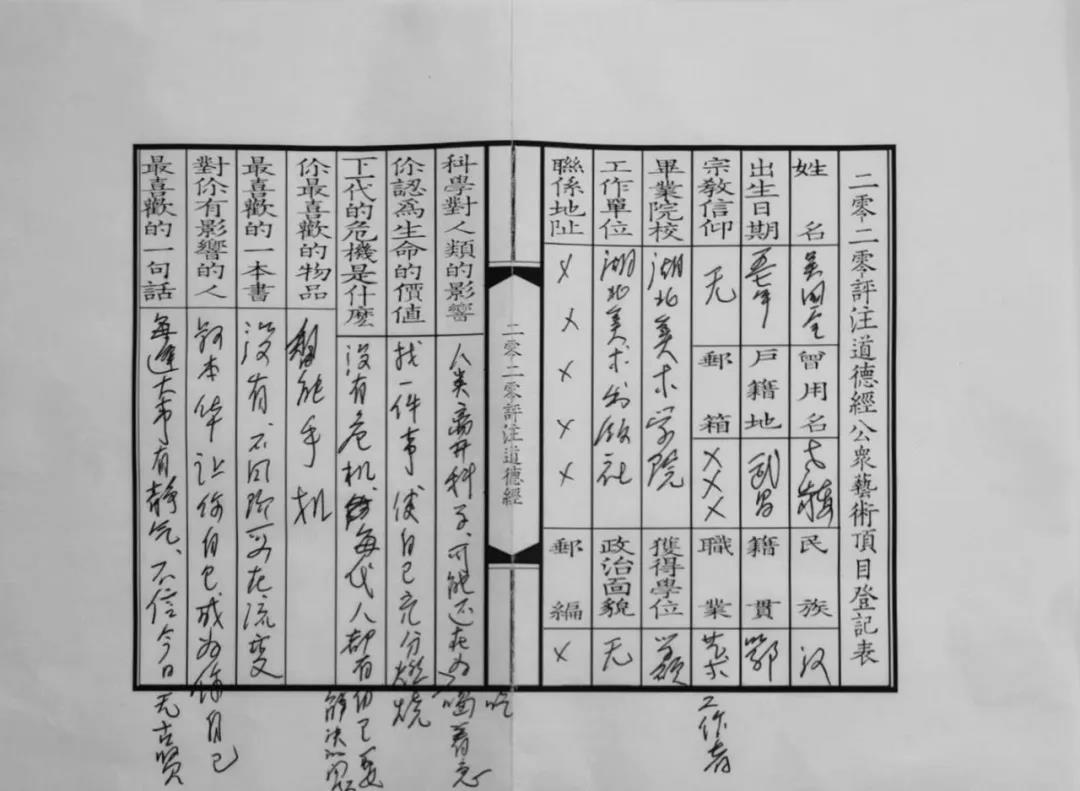 二零二零評注道德經公衆藝術頂目登記表
姓名 吴国全 曾用名 民族 汉
出生日期 五七年 戶籍地 武昌 籍貫 鄂
宗教信仰 无 郵箱 ××× 職業 美术工作者
畢業院校 湖北美术学院 獲得學位
工作單位 湖北美术出版社 政治面貌 无
聯係地址 ××××× 郵編 ×
二零二零評注道德經
科學對人類的影響 人类离开科学、可能还在为吃喝着急
你認爲生命的價值 找一件事使自己充分燃烧
下一代的危機是什麽 没有危机 每代人都有自己要解决的问题
你最喜歡的物品 智能手机
最喜歡的一本書 没有 不同阶段在流变
對你有影響的人 叔本华 让你自己成为你自己
最喜歡的一句話 每逢大事有静气、不信今日无古贤